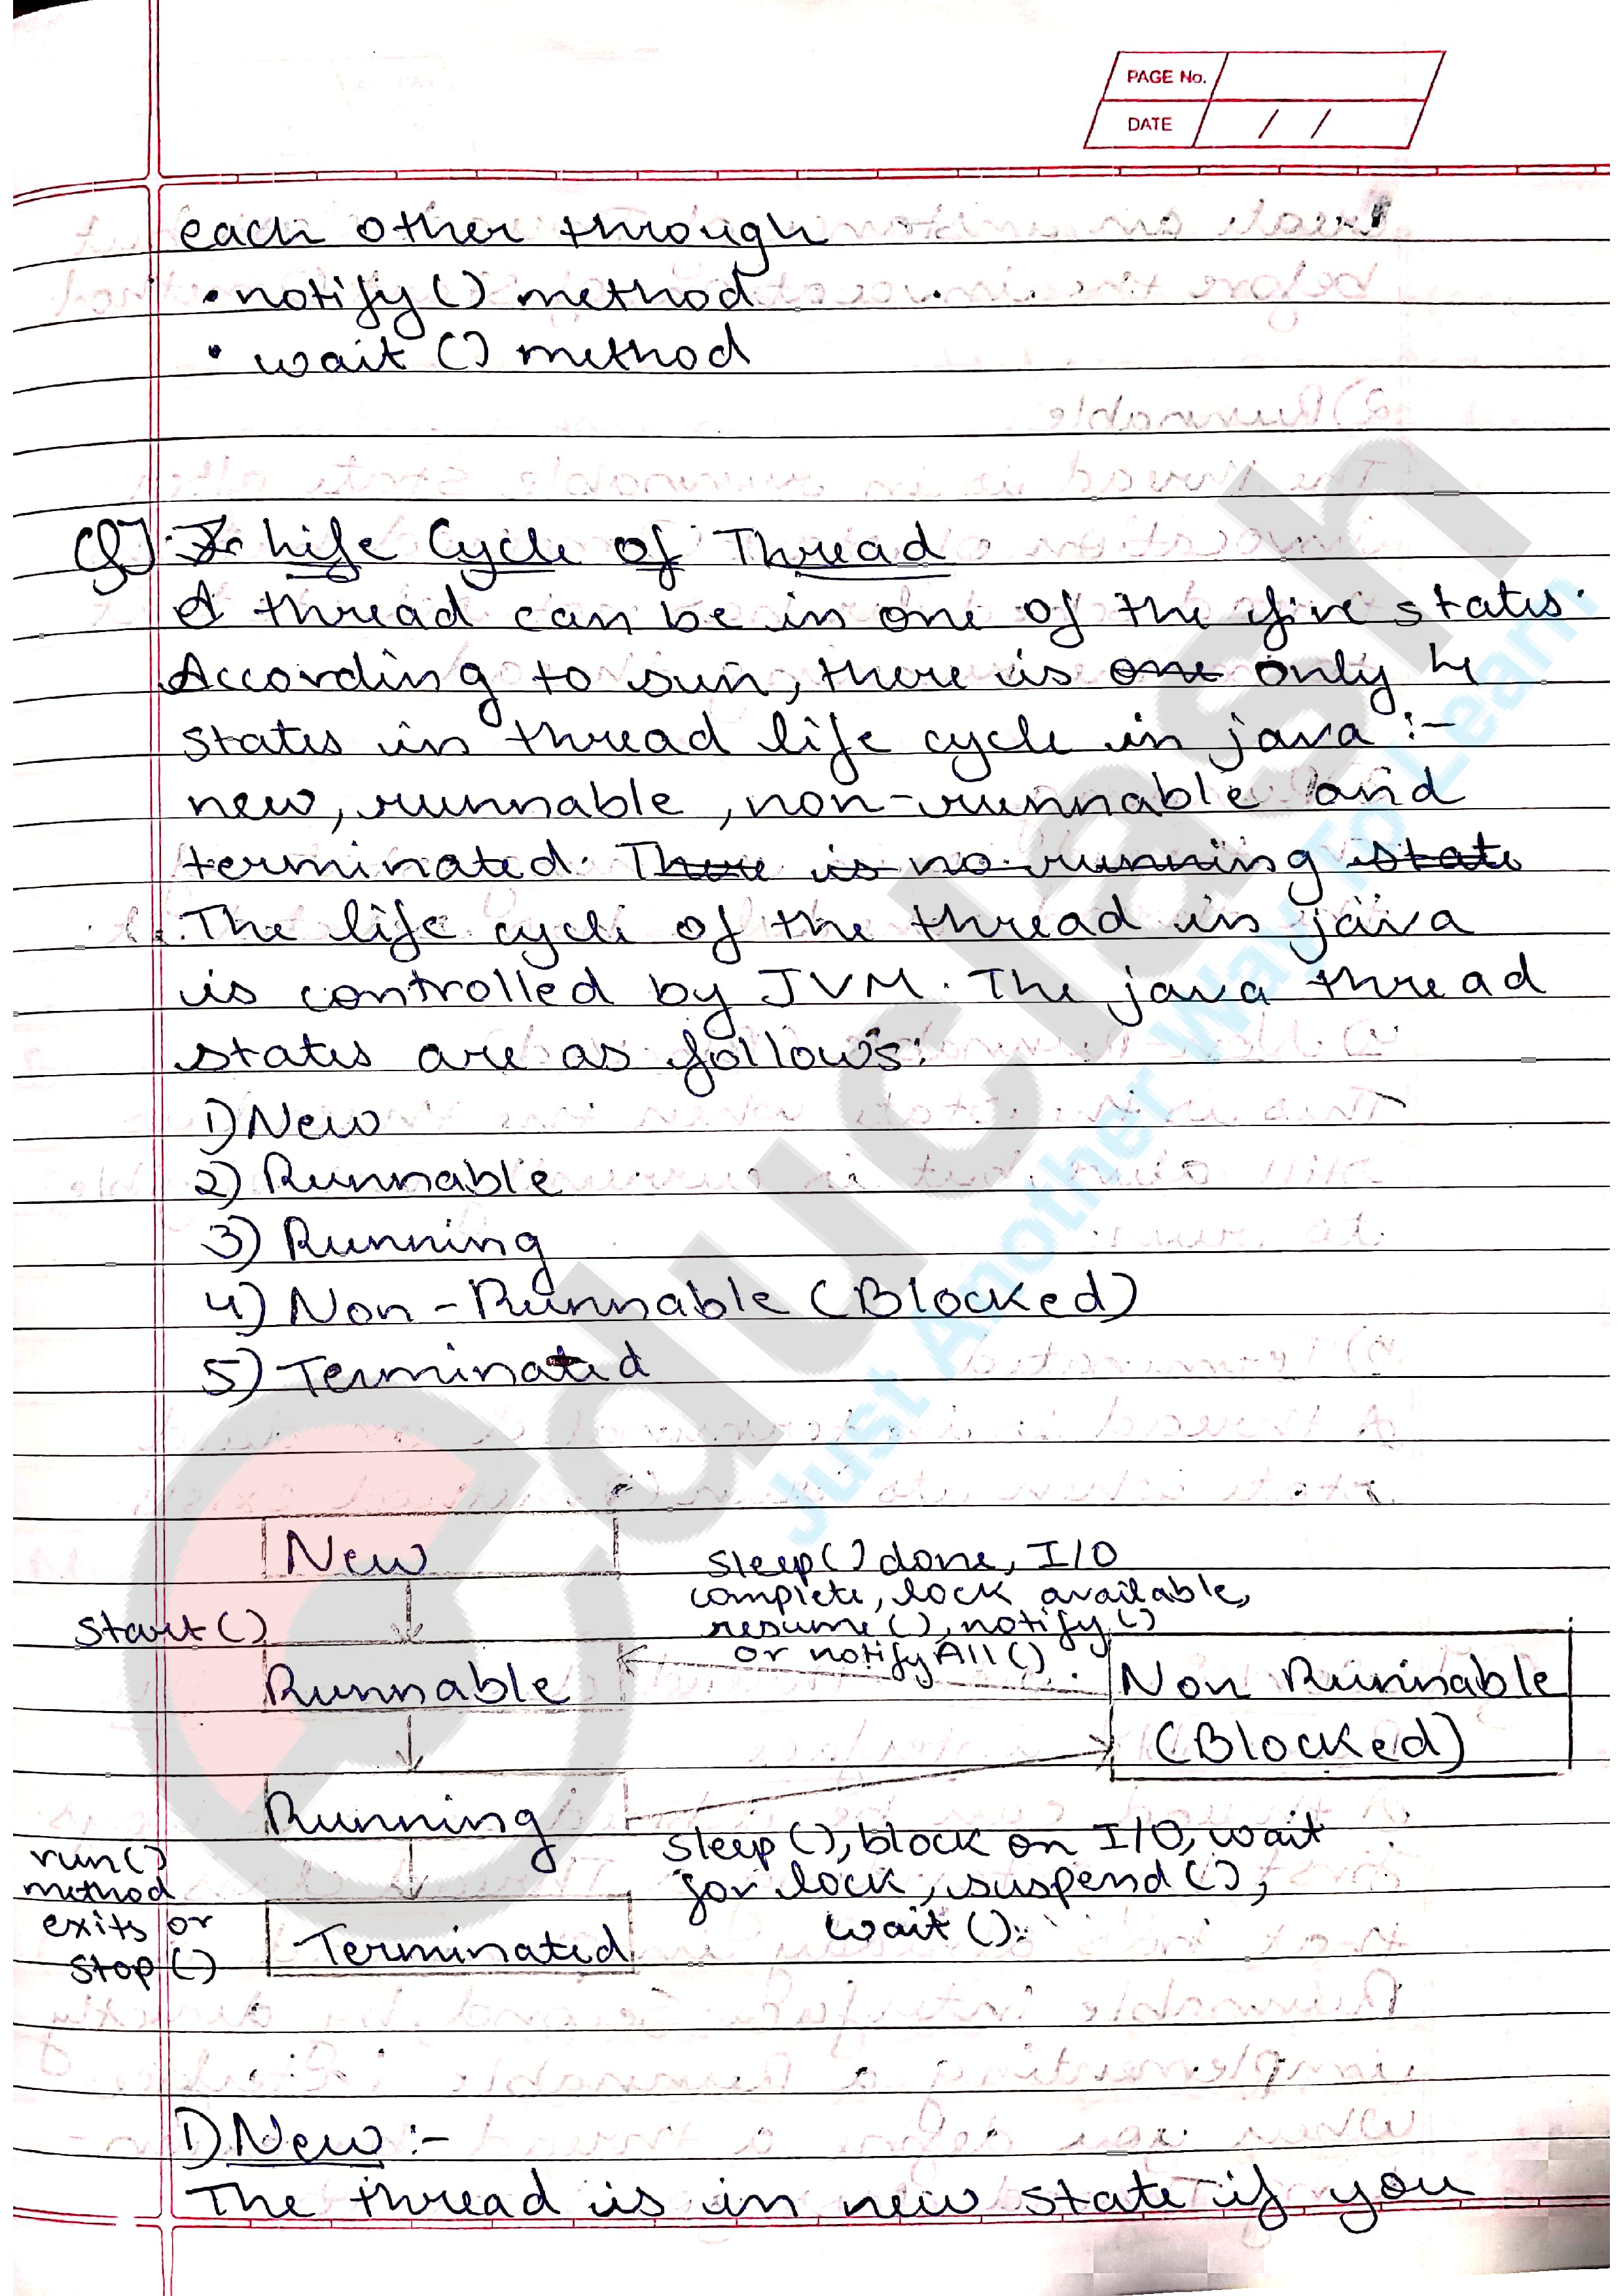 PAGE No.
DATE / /
each other through
• notify() method
• wait () method
Q] Life Cycle of Thread
A thread can be in one of the five states.
According to sun, there is one only 4
states in thread life cycle in java :-
new, runnable, non-runnable and
terminated. There is no running state
The life cycle of the thread in java
is controlled by JVM. The java thread
states are as follows:
1) New
2) Runnable
3) Running
4) Non-Runnable (Blocked)
5) Terminated
New
start()
Runnable
Running
run()
method
exits or
stop()
Terminated
sleep() done, I/O
complete, lock available,
resume(), notify()
or notifyAll()
Non Runnable
(Blocked)
sleep(), block on I/O, wait
for lock, suspend(),
wait().
1) New :-
The thread is in new state if you
educlash
Just Another Way To Learn